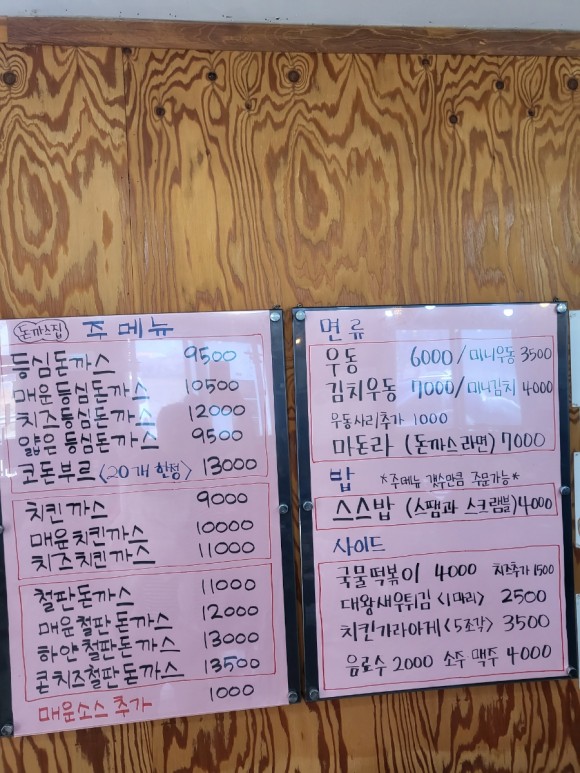 돈까스집 주메뉴
등심돈까스 9500
매운등심돈까스 10500
치즈등심돈까스 12000
얇은등심돈까스 9500
코돈부르 <20개 한정> 13000
치킨까스 9000
매운치킨까스 10000
치즈치킨까스 11000
철판돈까스 11000
매운철판돈까스 12000
하얀철판돈까스 13000
콘치즈철판돈까스 13500
매운소스 추가 1000
면류
우동 6000 / 미니우동 3500
김치우동 7000 / 미니김치 4000
우동사리추가 1000
마돈라 (돈까스라면) 7000
밥 *주메뉴 갯수만큼 주문가능*
스스밥 (스팸과 스크램블) 4000
사이드
국물떡볶이 4000 치즈추가 1500
대왕새우튀김 <1마리> 2500
치킨가라아게 <5조각> 3500
음료수 2000 소주 맥주 4000